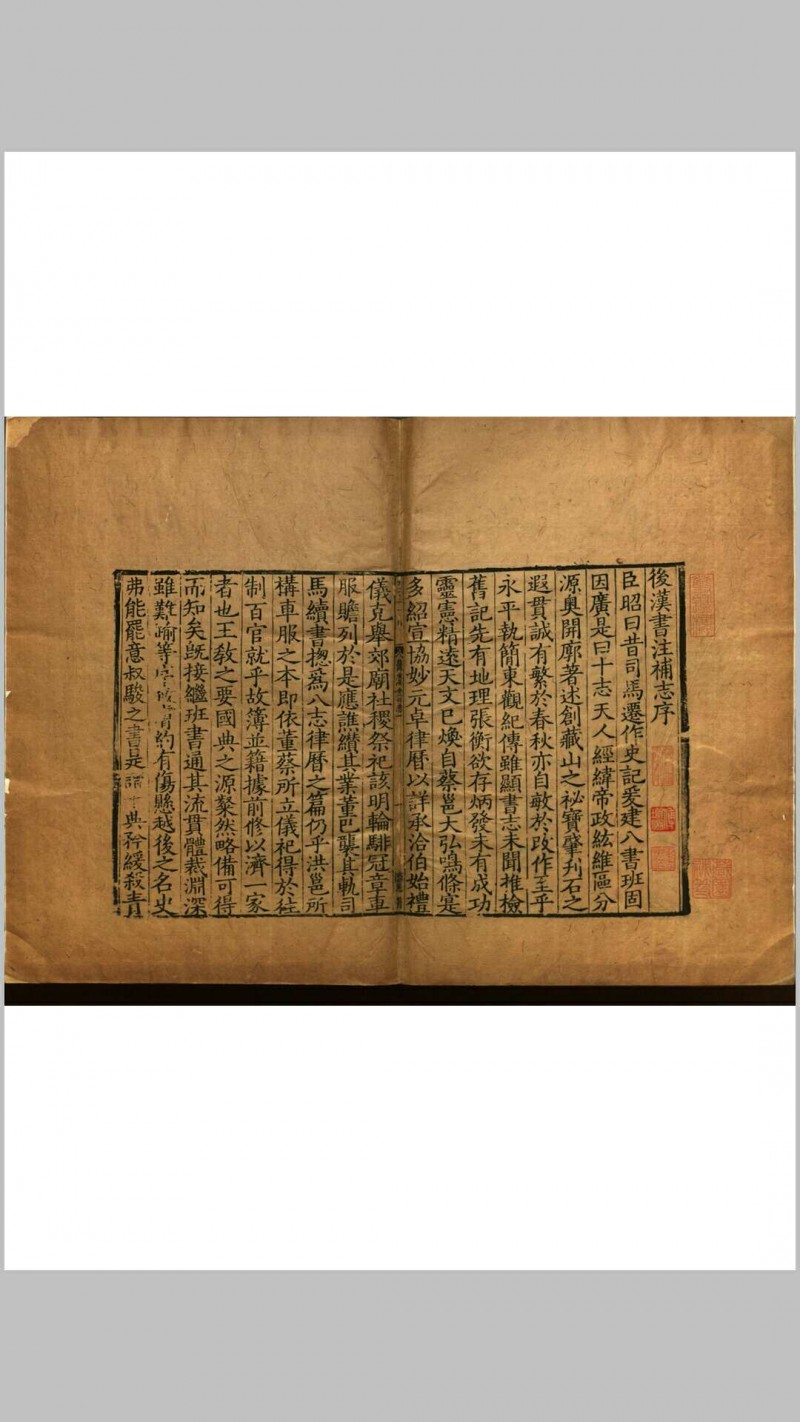 後漢書注補志序
臣昭曰昔司馬遷作史記爰建八書班固
因廣是曰十志天人經緯帝政紘維區分
源奧開廓著述創藏山之祕寶肇刋石之
遐貫誠有繁於春秋亦自敏於改作至乎
永平執簡東觀紀傳雖顯書志未聞推檢
舊記先有地理張衡欲存炳發未有成功
靈憲精遠天文已煥自蔡邕大弘鳴條寔
多紹宣協妙元卓律曆以詳承洽伯始禮
儀克舉郊廟社稷祭祀該明輪騑冠章車
服贍列於是應譙纘其業董巴襲其軌司
馬續書揔爲八志律曆之篇仍乎洪邕所
構車服之本即依董蔡所立儀祀得於往
制百官就乎故簿並籍據前修以濟一家
者也王敎之要國典之源粲然略備可得
而知矣旣接繼班書通其流貫體裁淵深
雖難踰等序致膚約有傷懸越後之名史
弗能罷意叔駿之書是十典矜緩殺青